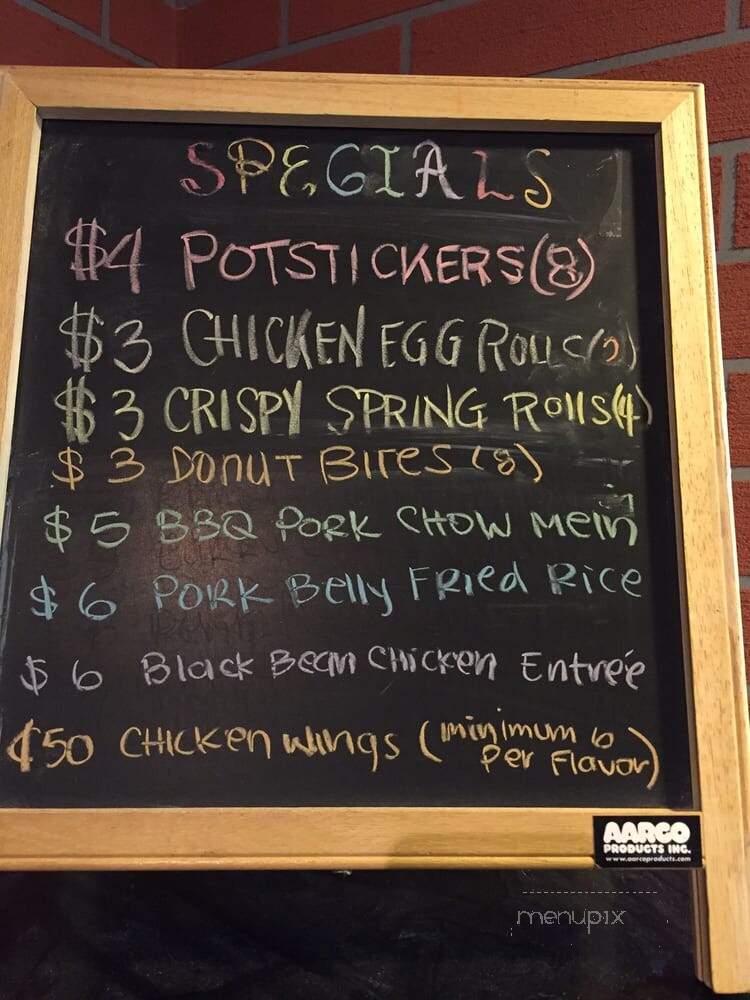 SPECIALS
$4 POTSTICKERS (8)
$3 CHICKEN EGG ROLLS (2)
$3 CRISPY SPRING ROllS (4)
$3 DONUT BITES (8)
$5 BBQ PORK CHOW Mein
$6 PORK Belly Fried Rice
$6 Black Bean Chicken Entreé
¢50 CHICKen Wings (minimum 6
Per Flavor)
AARCO
PRODUCTS INC.
www.aarcoproducts.com
menupix